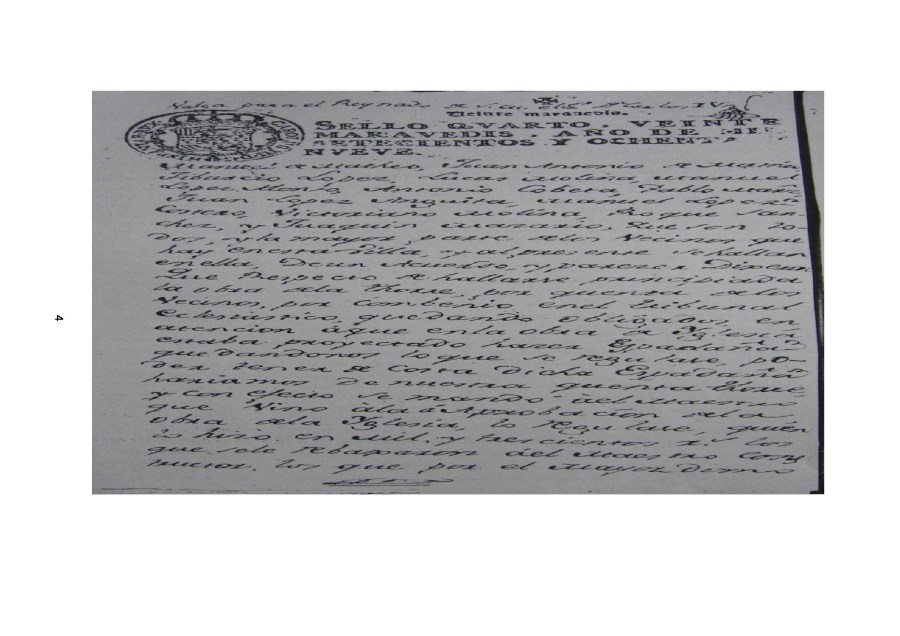 Valga para el Reynado de S. M. el Sr. Dn. Carlos IV
Veinte maravedis.
SELLO QVARTO, VEINTE
MARAVEDIS, AÑO DE MIL
SETECIENTOS Y OCHENTA
NVEVE.
Juan Antonio
Tiburcio Lopez, Luca Molina Manuel
Lopez Antonio Cobera, Pablo
Juan Lopez Angulta, Manuel Lopez
Costero, Victoriano Molina, Roque San-
chez, y Juaquin Mazario, que son to-
dos, y la mayor parte delos Vecinos que
hay enesta Villa, y al presente se hallan
enella Deun Acuerdo, y parecer Dixeron
Que Respecto de hallarse principiada
la obra dela Torre, por quenta delos
Vecinos, por Combenio Enel Tribunal
Eclesiastico, quedando Obligados, en
atencion aque enla obra de la Yglesia
estaba proyectado hazer Espadaña
quedandonos lo que se regulase, po-
der tener de Costa Dicha Espadaña
hariamos de nuestra quenta Torre
y con efecto se mando, al Maestro
que Vino ala Aprobacion dela
obra dela Yglesia lo Regulase, quien
lo hizo en Mil, y trescientos rs. los
que sele rebaxaron del Maestro Cons
tructor. los que por el Mayor Domo
4